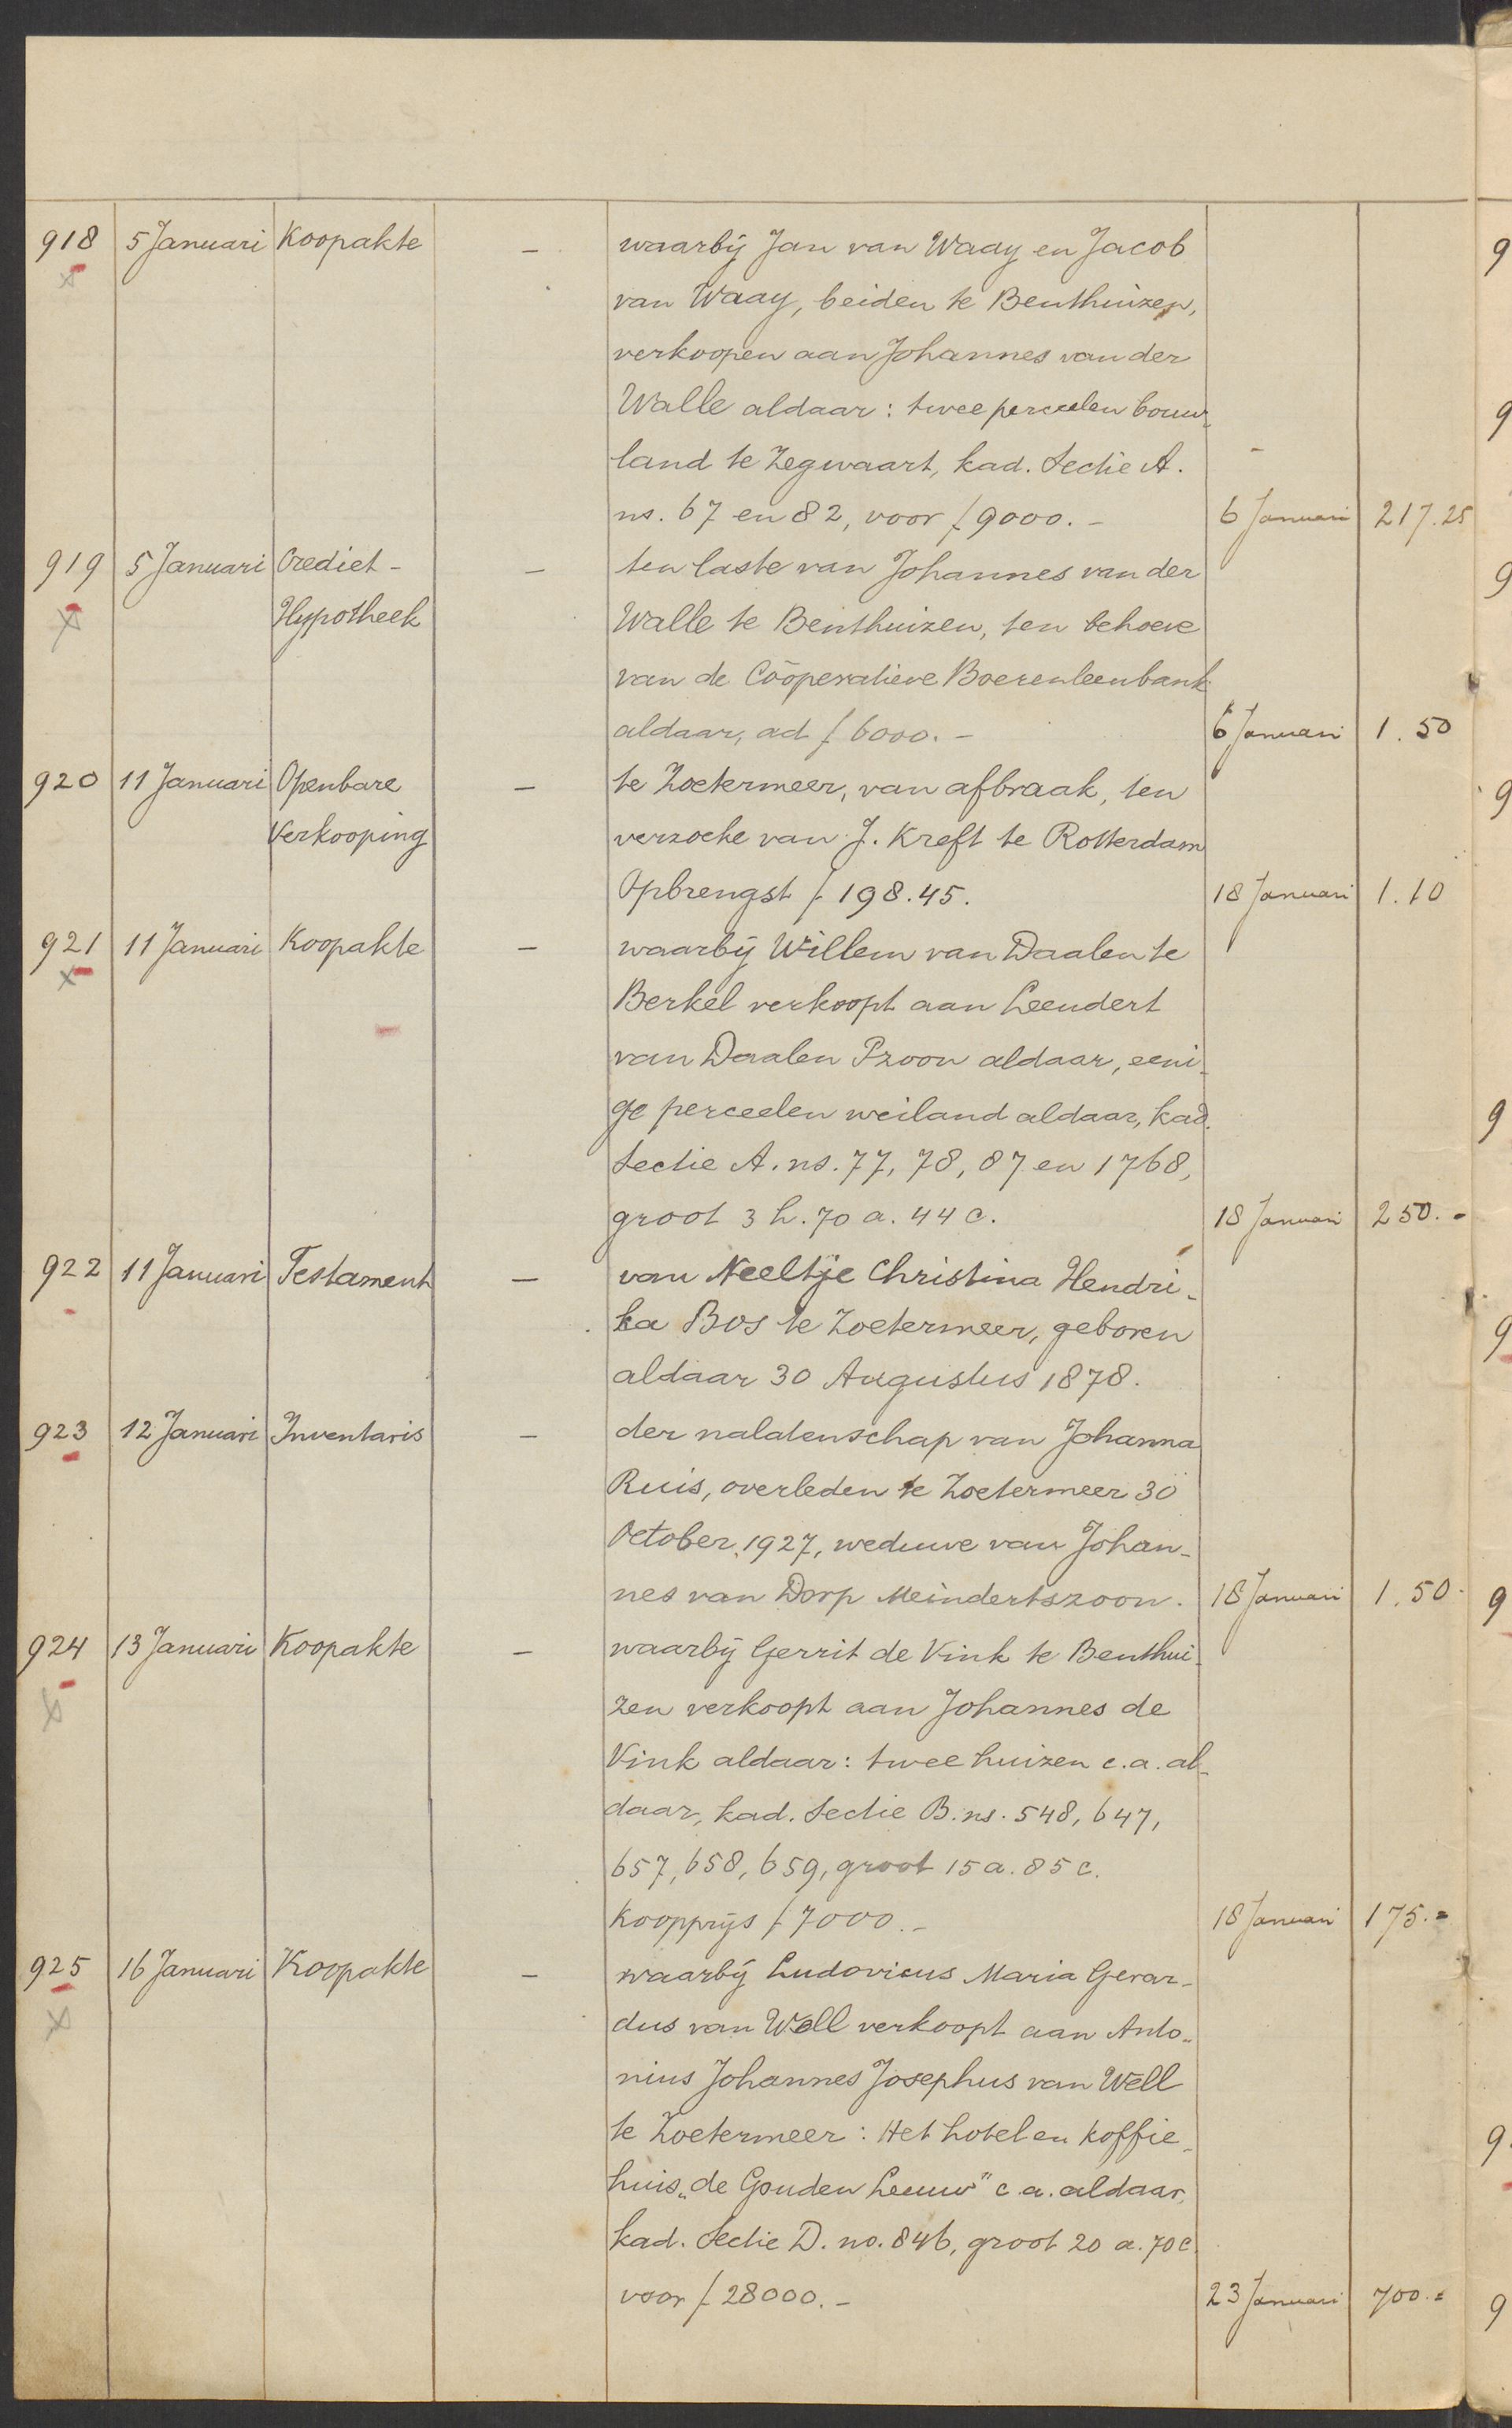 918 5 Januari Koopakte - waarbij Jan van Waay en Jacob
van Waay, beiden te Benthuizen,
verkoopen aan Johannes van der
Walle aldaar: twee perceelen bouw-
land te Zegwaart, kad. Sectie A. -
ns. 67 en 82, voor ƒ 9000.- 6 Januari 217.25
919 5 Januari Crediet- - ten laste van Johannes van der
Hypotheek Walle te Benthuizen, ten behoeve
van de Coöperatieve Boerenleenbank
aldaar, ad ƒ 6000.- 6 Januari 1.50
920 11 Januari Openbare - te Zoetermeer, van afbraak, ten
Verkooping verzoeke van J. Kreft te Rotterdam
Opbrengst ƒ 198.45. 18 Januari 1.10
921 11 Januari Koopakte - waarbij Willem van Daalen te
Berkel verkoopt aan Leendert
van Daalen Pzoon aldaar, eeni-
ge perceelen weiland aldaar, kad.
Sectie A. ns. 77, 78, 87 en 1768,
groot 3 h. 70 a. 44 c. 18 Januari 250.-
922 11 Januari Testament - van Neeltje Christina Hendri-
ka Bos te Zoetermeer, geboren
aldaar 30 Augustus 1878.
923 12 Januari Inventaris - der nalatenschap van Johanna
Ruis, overleden te Zoetermeer 30
October 1927, weduwe van Johan-
nes van Dorp Meindertszoon. 18 Januari 1.50
924 13 Januari Koopakte - waarbij Gerrit de Vink te Benthui-
zen verkoopt aan Johannes de
Vink aldaar: twee huizen c.a. al-
daar, kad. Sectie B. ns. 548, 647,
657, 658, 659, groot 15 a. 85 c.
Koopprijs ƒ 7000.- 18 Januari 175.=
925 16 Januari Koopakte - waarbij Ludovicus Maria Gerar-
dus van Well verkoopt aan Anto-
nius Johannes Josephus van Well
te Zoetermeer: Het hotel en koffie-
huis „de Gouden Leeuw" c.a. aldaar,
kad. Sectie D. no. 846, groot 20 a. 70 c.
voor ƒ 28000.- 23 Januari 700.=